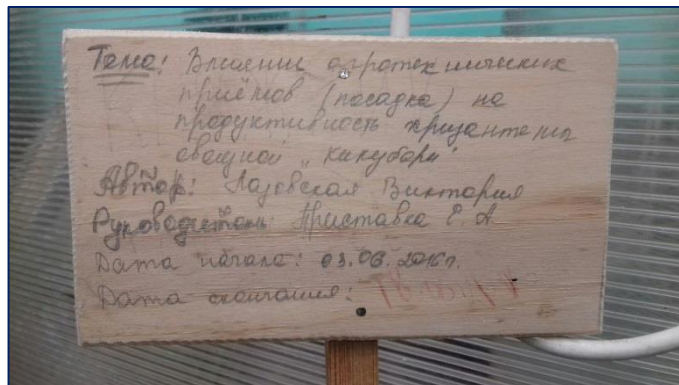 Тема: Влиянии агротехнических
приёмов (посадка) на
продуктивность хризантемы
овощной „Какубари"
Автор: Лазовская Виктория
Руководитель: Приставка Е. А.
Дата начала: 03.06.2016г.
Дата окончания: